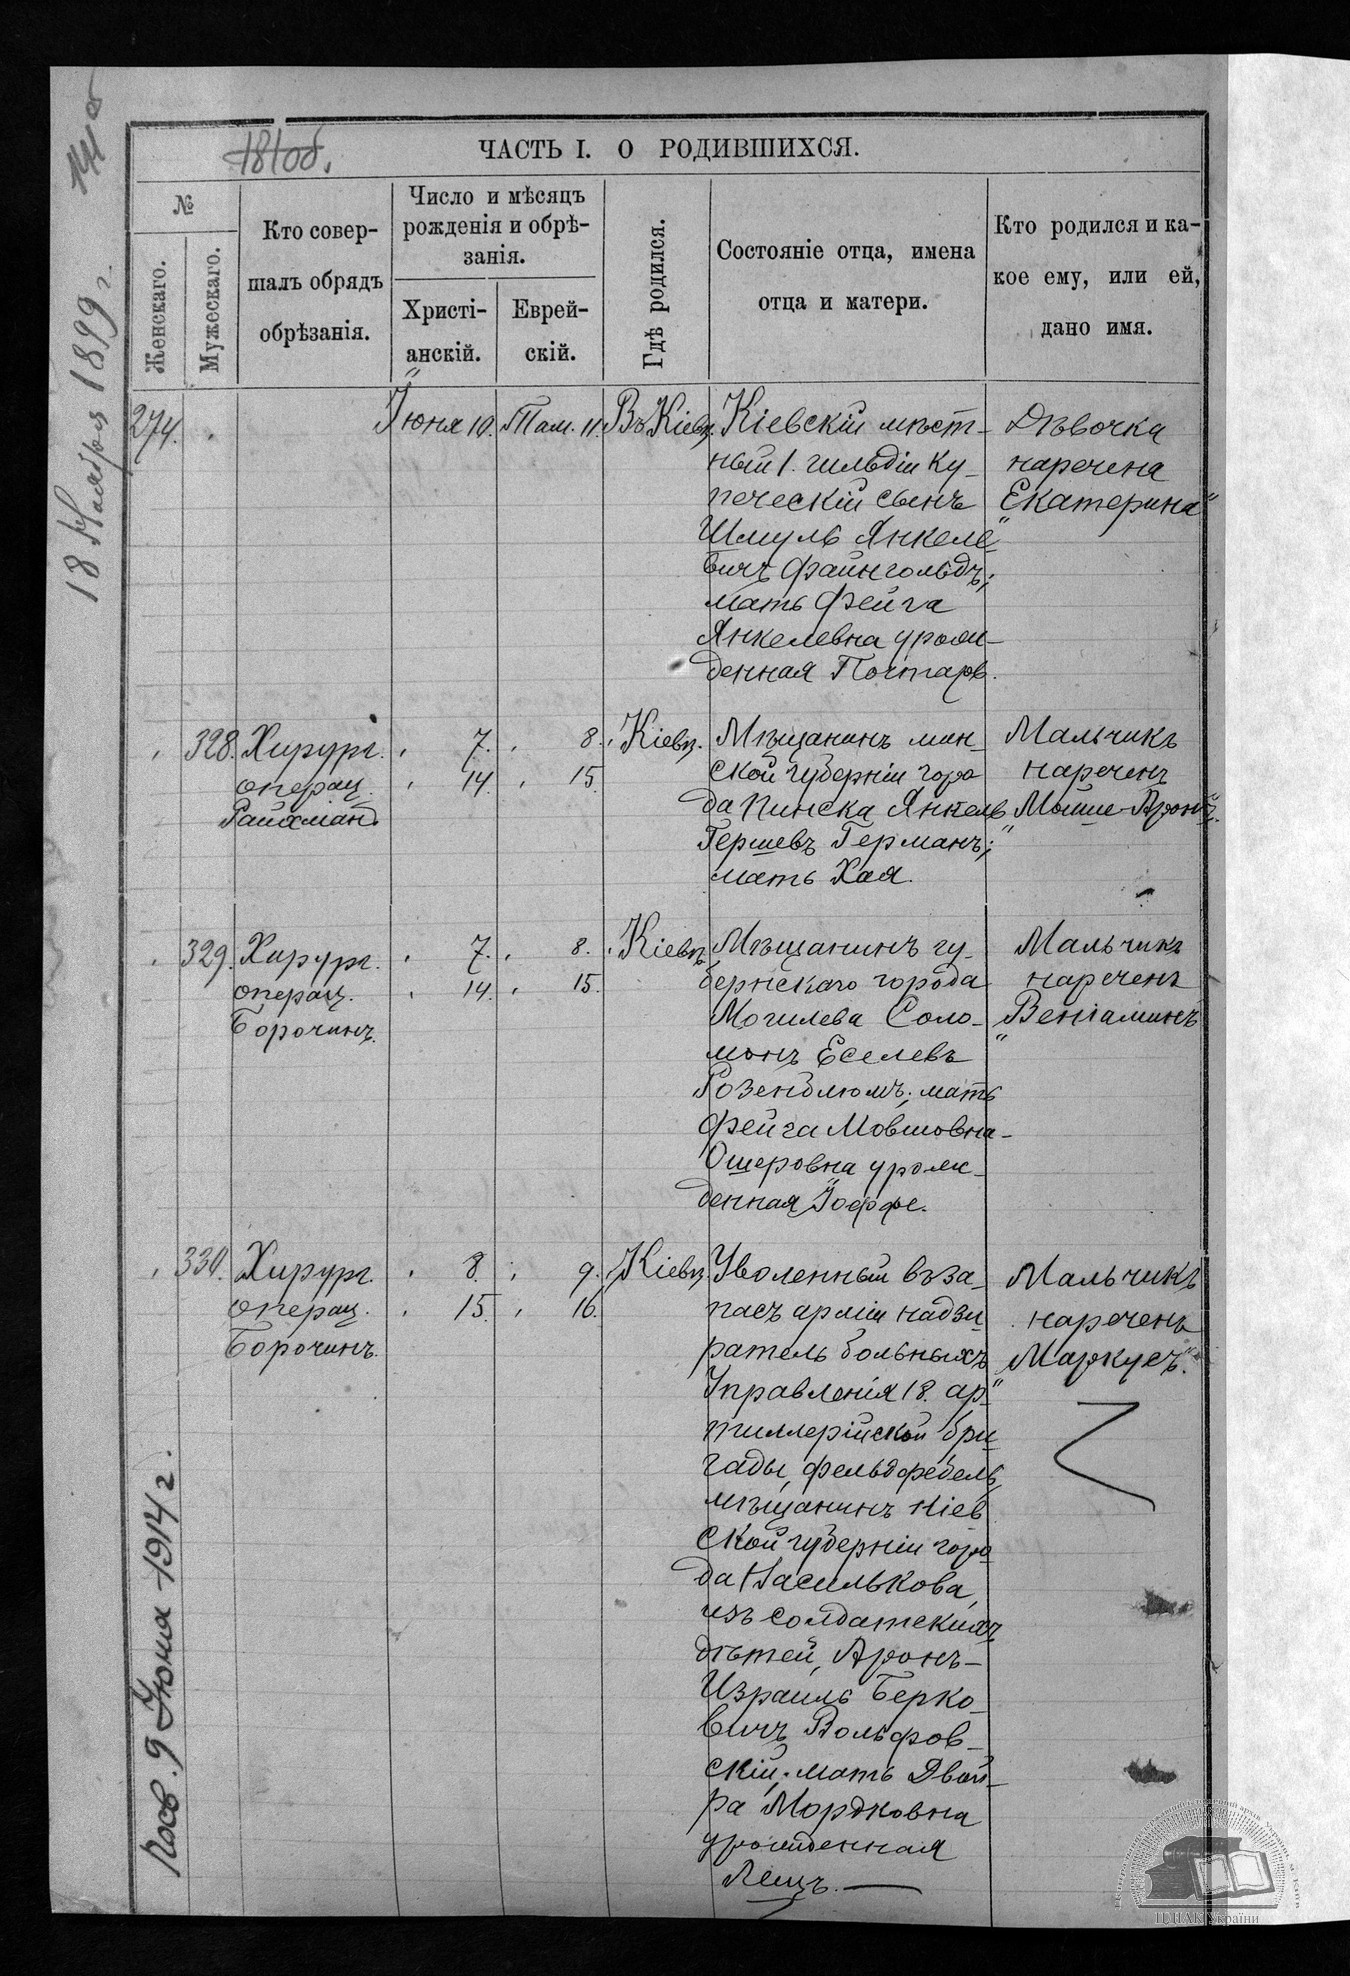 181об.
18 Ноября 1899 г.
ЧАСТЬ I. О РОДИВШИХСЯ.
№
Женскаго.
Мужескаго.
Кто совер-
шалъ обрядъ
обрѣзанія.
Число и мѣсяцъ
рожденія и обрѣ-
занія.
Христі-
анскій.
Еврей-
скій.
Гдѣ родился.
Состояніе отца, имена
отца и матери.
Кто родился и ка-
кое ему, или ей,
дано имя.
274. Іюня 10. Там. 11. Въ Кіевѣ.
Кіевскій мѣст-
ный 1. гильдіи ку-
печескій сынъ
Шмуль Янкеле-
вичъ Файнгольдъ;
мать Фейга
Янкелевна урож-
денная Почтарь.
Дѣвочка
наречена
„Екатерина“
328. Хирург. 7. 8. Кіевѣ.
операц. 14. 15.
Райхман.
Мѣщанинъ мин-
ской губерніи горо
да Пинска Янкель
Гершевъ Германъ;
мать Хая.
Мальчикъ
нареченъ
„Мойше-Аронъ“.
329. Хирург. 7. 8. Кіевѣ
операц. 14. 15.
Борочинъ.
Мѣщанинъ гу-
бернскаго города
Могилева Соло-
монъ Еселевъ
Розенблюмъ; мать
Фейга Мовшовна-
Ошеровна урож-
денная Іоффе.
Мальчикъ
нареченъ
„Веніаминъ“
330. Хирург. 8. 9. Кіевѣ.
операц. 15. 16.
Борочинъ.
Уволенный въ за-
пасъ арміи надзи-
ратель больныхъ
Управленія 18. ар-
тиллерійской бри-
гады, фельдфебель,
мѣщанинъ Кіев
ской губерніи горо-
да Василькова,
изъ солдатскихъ
дѣтей, Аронъ-
Израиль Берко-
вичъ Вольфов-
скій; мать Двой-
ра Мордковна
урожденная
Лещъ.
Мальчикъ
нареченъ
„Маркусъ“.
9 Іюня 1914 г.
ЦДІАК України